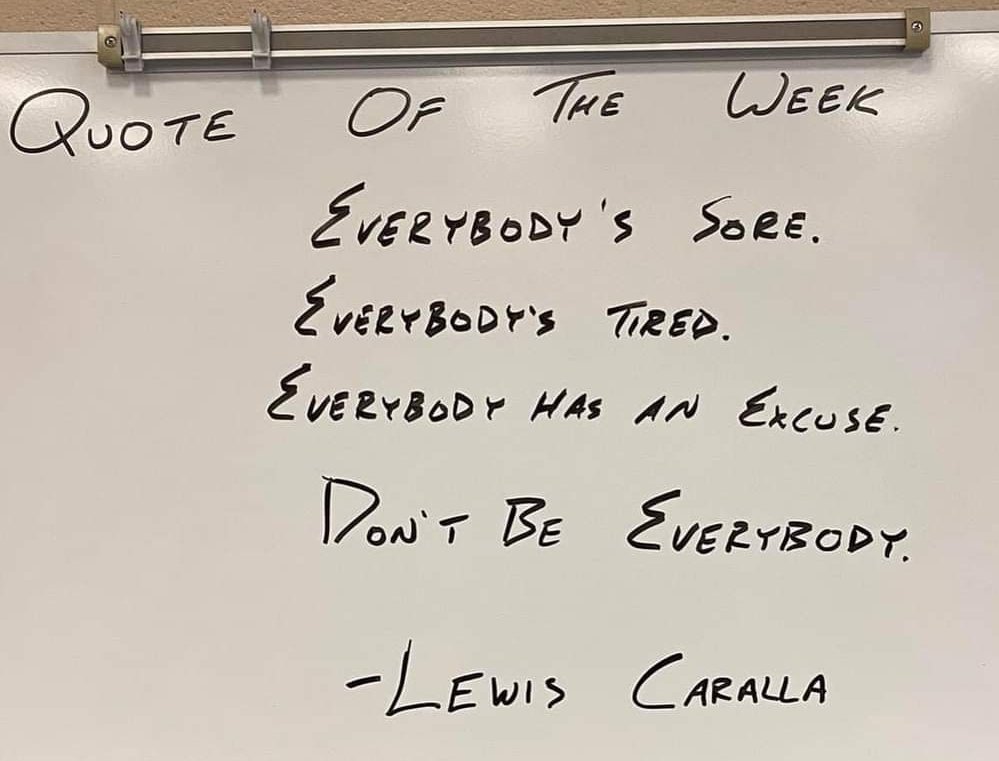 QUOTE OF THE WEEK
EVERYBODY'S SORE.
EVERYBODY'S TIRED.
EVERYBODY HAS AN EXCUSE.
DON'T BE EVERYBODY.
-LEWIS CARALLA